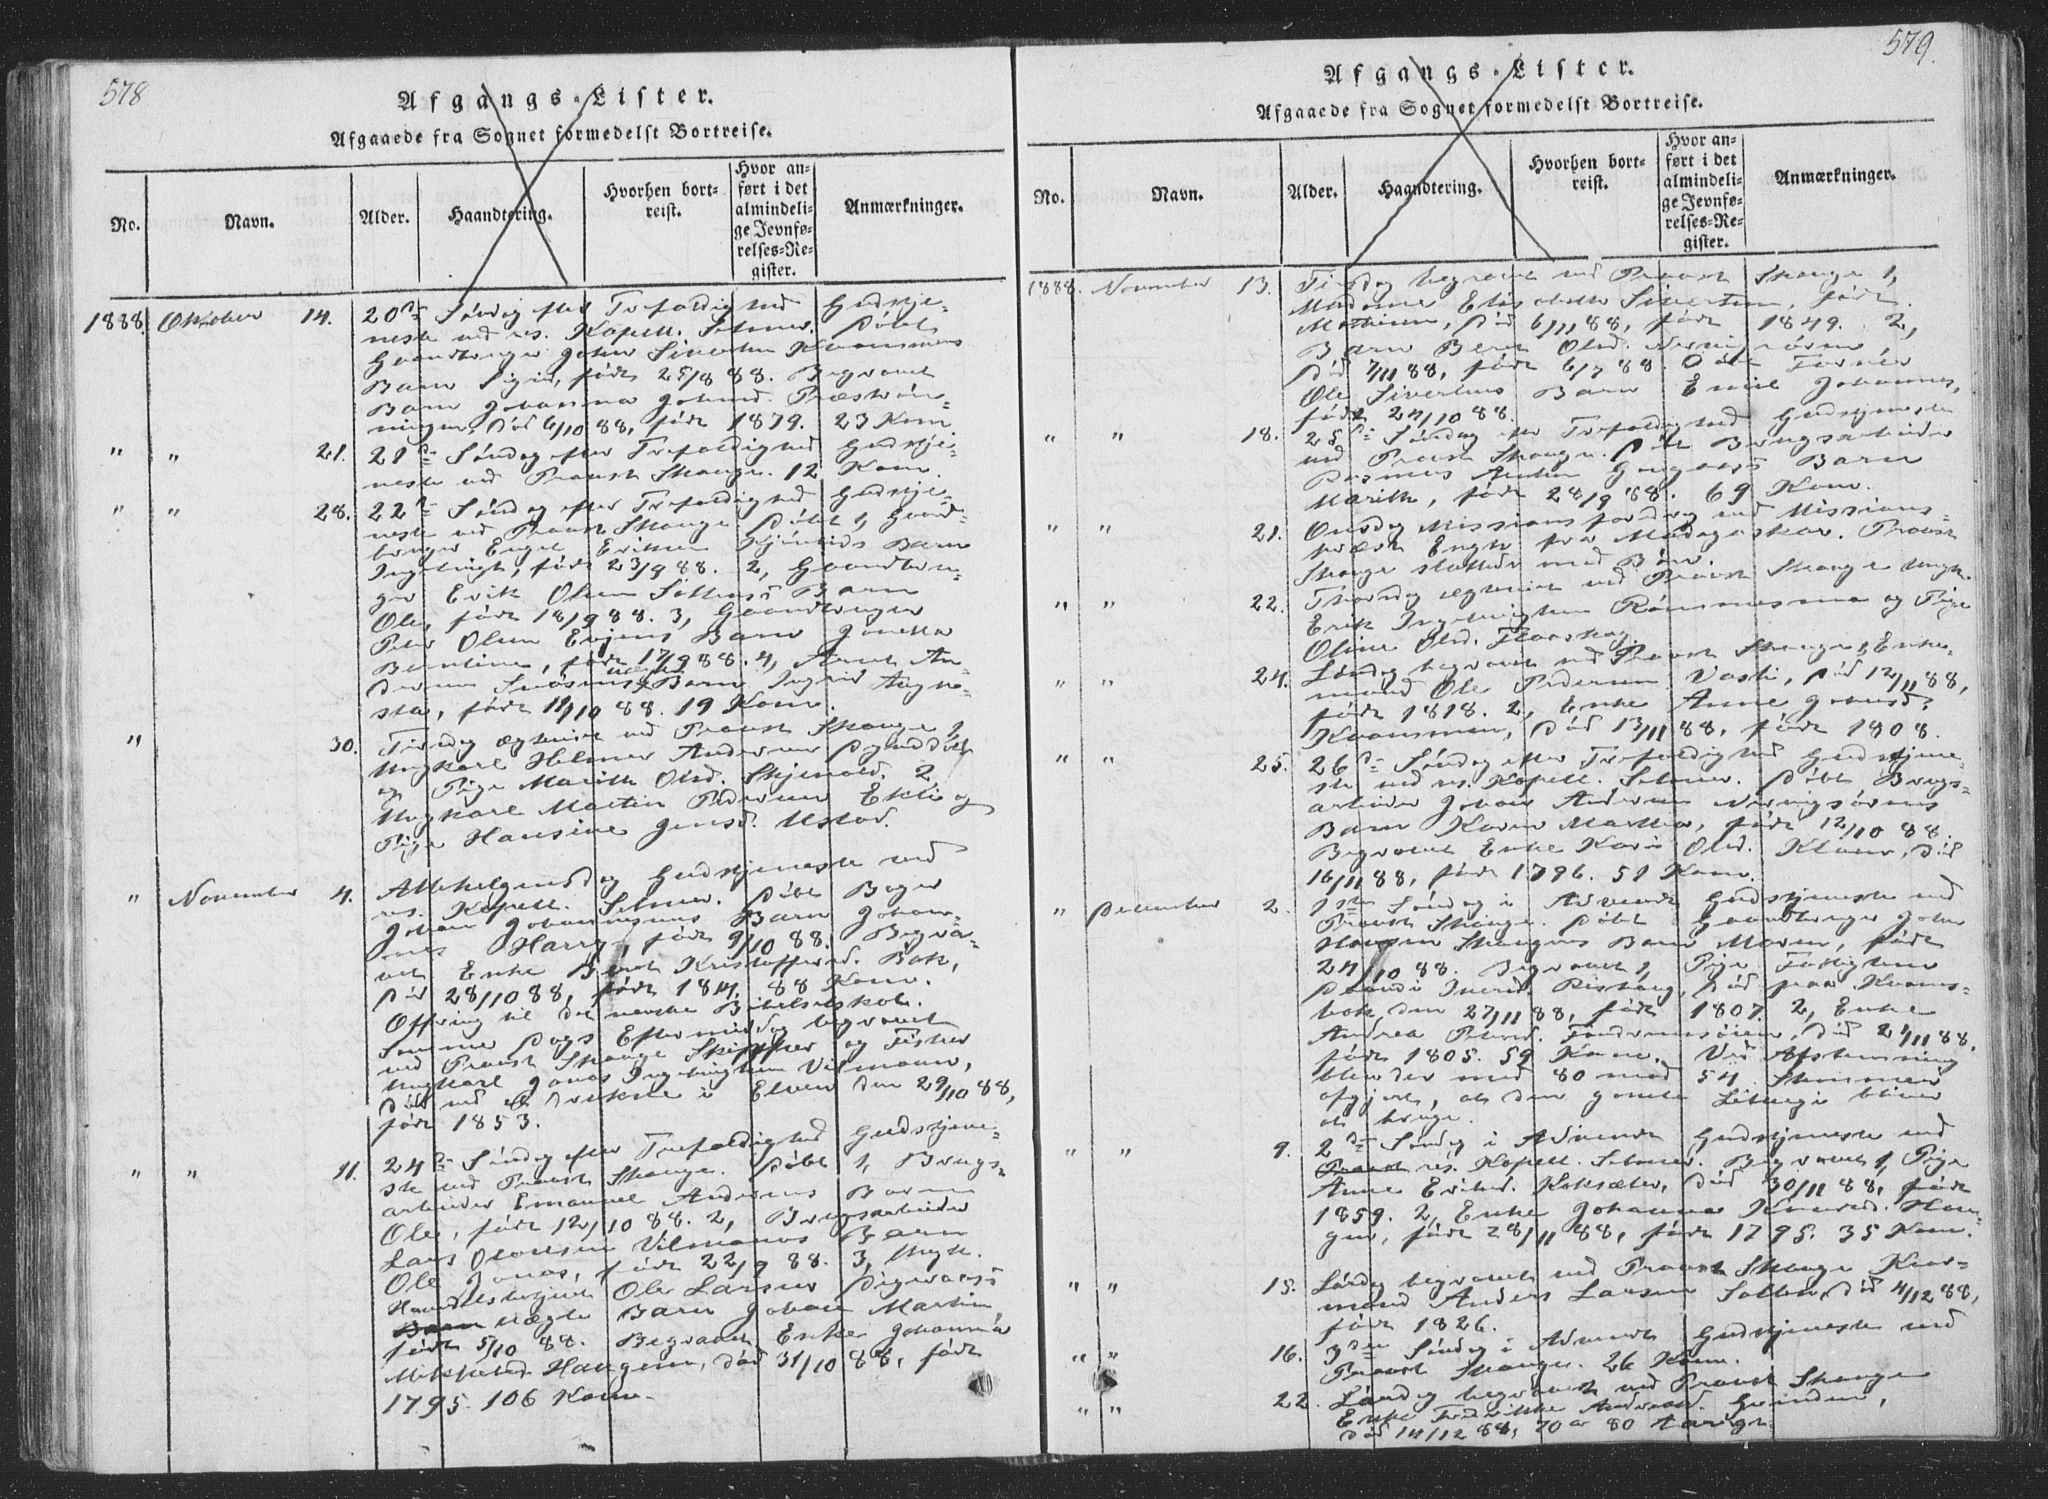 578
Afgangs-Lister.
Afgaaede fra Sognet formedelst Bortreise.
No. Navn. Alder. Haandtering. Hvorhen bortreist. Hvor anført i det almindelige Jevnførelses-Register. Anmærkninger.
1888. Oktober 14. 20de Søndag efter Trefoldighed Gudstje-
neste ved res. Kapell. Selmer. Døbt
Gaardbruger John Sivertsen Kvammens
Barn Sigrid, født 25/8 88. Begravet
Barn Johanna Johnsd.
ningen, død 6/10 88, født 1879. 23 Kom.
" " 21. 21de Søndag efter Trefoldighed Gudstje-
neste ved Provst Skauge. 12 Kom.
" " 28. 22de Søndag efter Trefoldighed Gudstje-
neste ved Provst Skauge. Døbt 1, Gaard-
bruger Engel Eriksen Barn
født 23/9 88. 2, Gaardbru-
ger Erik Olsen Barn
Ole, født 18/9 88. 3, Gaardbruger
Peter Olsen Evjens Barn Jonetta
Berntine, født 17/9 88. 4, Arnt An-
dersens uægte Barn Ingrid Augu-
sta, født 11/10 88. 19 Kom.
" 30. Tirsdag ægteviet ved Provst Skauge 1,
Ungkarl Helmer Andersen
og Pige Marith Olsd. Skjenald. 2,
Ungkarl Martin Pedersen Ekli og
Pige Hansine Jensd. Ustad.
" November 4. Allehelgensdag Gudstjeneste ved
res. Kapell. Selmer. Døbt Bager
Johan Johannesens Barn Johan-
nes Harry, født 9/10 88. Begra-
vet Enke Beret Kristoffersd. Bak,
død 28/10 88, født 1814. 88 Kom.
Offring til det norske Bibelselskab.
Samme Dags Eftermiddag begravet
ved Provst Skauge Skipper og Fisker
Ungkarl Jonas Ingebrigtsen Vilmann,
død ved at drukne i Elven den 29/10 88,
født 1853.
" " 11. 24de Søndag efter Trefoldighed Gudstjene-
ste ved Provst Skauge. Døbt 1, Brugs-
arbeider Emanuel Andersens Barn
Ole, født 12/10 88. 2, Brugsarbeider
Lars Olausen Vilmanns Barn
Ole Jonas, født 22/9 88. 3, Ungk.
Handelsbetjent Ole Larsen
Barn uægte Barn Johan Martin,
født 5/10 88. Begravet Enke Johanna
Mikkelsd. Haugen, død 31/10 88, født
1795. 106 Kom.
579.
Afgangs-Lister.
Afgaaede fra Sognet formedelst Bortreise.
No. Navn. Alder. Haandtering. Hvorhen bortreist. Hvor anført i det almindelige Jevnførelses-Register. Anmærkninger.
1888. November 13. Tirsdag begravet ved Provst Skauge 1,
Madame Elisabeth Sivertsen, født
død 6/11 88, født 1849. 2,
Barn Beret Olsd.
død 7/11 88, født 6/7 88. Døbt
Ole Sivertsens Barn Emil Johannes,
født 24/10 88.
" " 18. 25de Søndag efter Trefoldighed Gudstjeneste
ved Provst Skauge. Døbt Brugsarbeider
Barn
Marith, født 28/9 88. 69 Kom.
" " 21. Onsdag Missionsforedrag ved Missions-
præst Engh fra Madagaskar. Provst
Skauge sluttede med Bøn.
" " 22. Thorsdag ægteviet ved Provst Skauge Ungk.
Erik Ingebrigtsen og Pige
Oline Olsd. Flaaskag.
" " 24. Lørdag begravet ved Provst Skauge 1, Enke-
mand Ole Pedersen død 12/11 88,
født 1818. 2, Enke Anne Johnsd.
Kvammen, død 13/11 88, født 1808.
" " 25. 26de Søndag efter Trefoldighed Gudstjene-
ste ved res. Kapell. Selmer. Døbt Brugs-
arbeider Johan Andersen
Barn Karen Martha, født 12/10 88.
Begravet Enke Kari Olsd. død
16/11 88, født 1796. 51 Kom.
" December 2. 1ste Søndag i Advent Gudstjeneste ved
Provst Skauge. Døbt Gaardbruger John
Hansen Skauges Barn Maren, født
24/10 88. Begravet 1, Pige Fattiglem
Ingrid død paa Kvams-
bak den 27/11 88, født 1807. 2, Enke
Andrea død 24/11 88,
født 1805. 59 Kom. Ved Afstemning
blev der med 80 mod 54 Stemmer
afgjort, at den gamle Liturgi bliver
at bruge.
" " 9. 2den Søndag i Advent Gudstjeneste ved
Provst res. Kapell. Selmer. Begravet 1, Pige
Anne Eriksd. død 30/11 88, født
1859. 2, Enke Johanna Knudsd. Hau-
gen, født 28/11 88, født 1795. 35 Kom.
" " 15. Lørdag begravet ved Provst Skauge Kaar-
mand Anders Larsen død 4/12 88,
født 1826.
" " 16. 3die Søndag i Advent Gudstjeneste ved
Provst Skauge. 26 Kom.
" " 22. Lørdag begravet ved Provst Skauge
Enke Fredrikke Andersd.
død 14/12 88, 70 a 80 Aar gl.